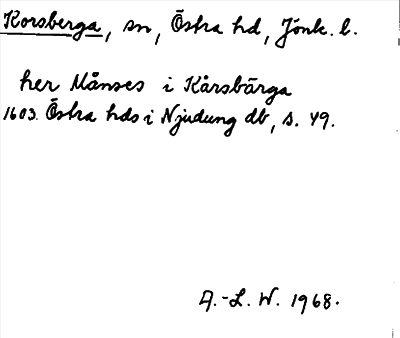 Korsberga, sn, Östra hd, Jönk. l.
her Månses i Kårsbärga
1603. Östra hds i Njudung db, s. 49.
A.-L. W. 1968.